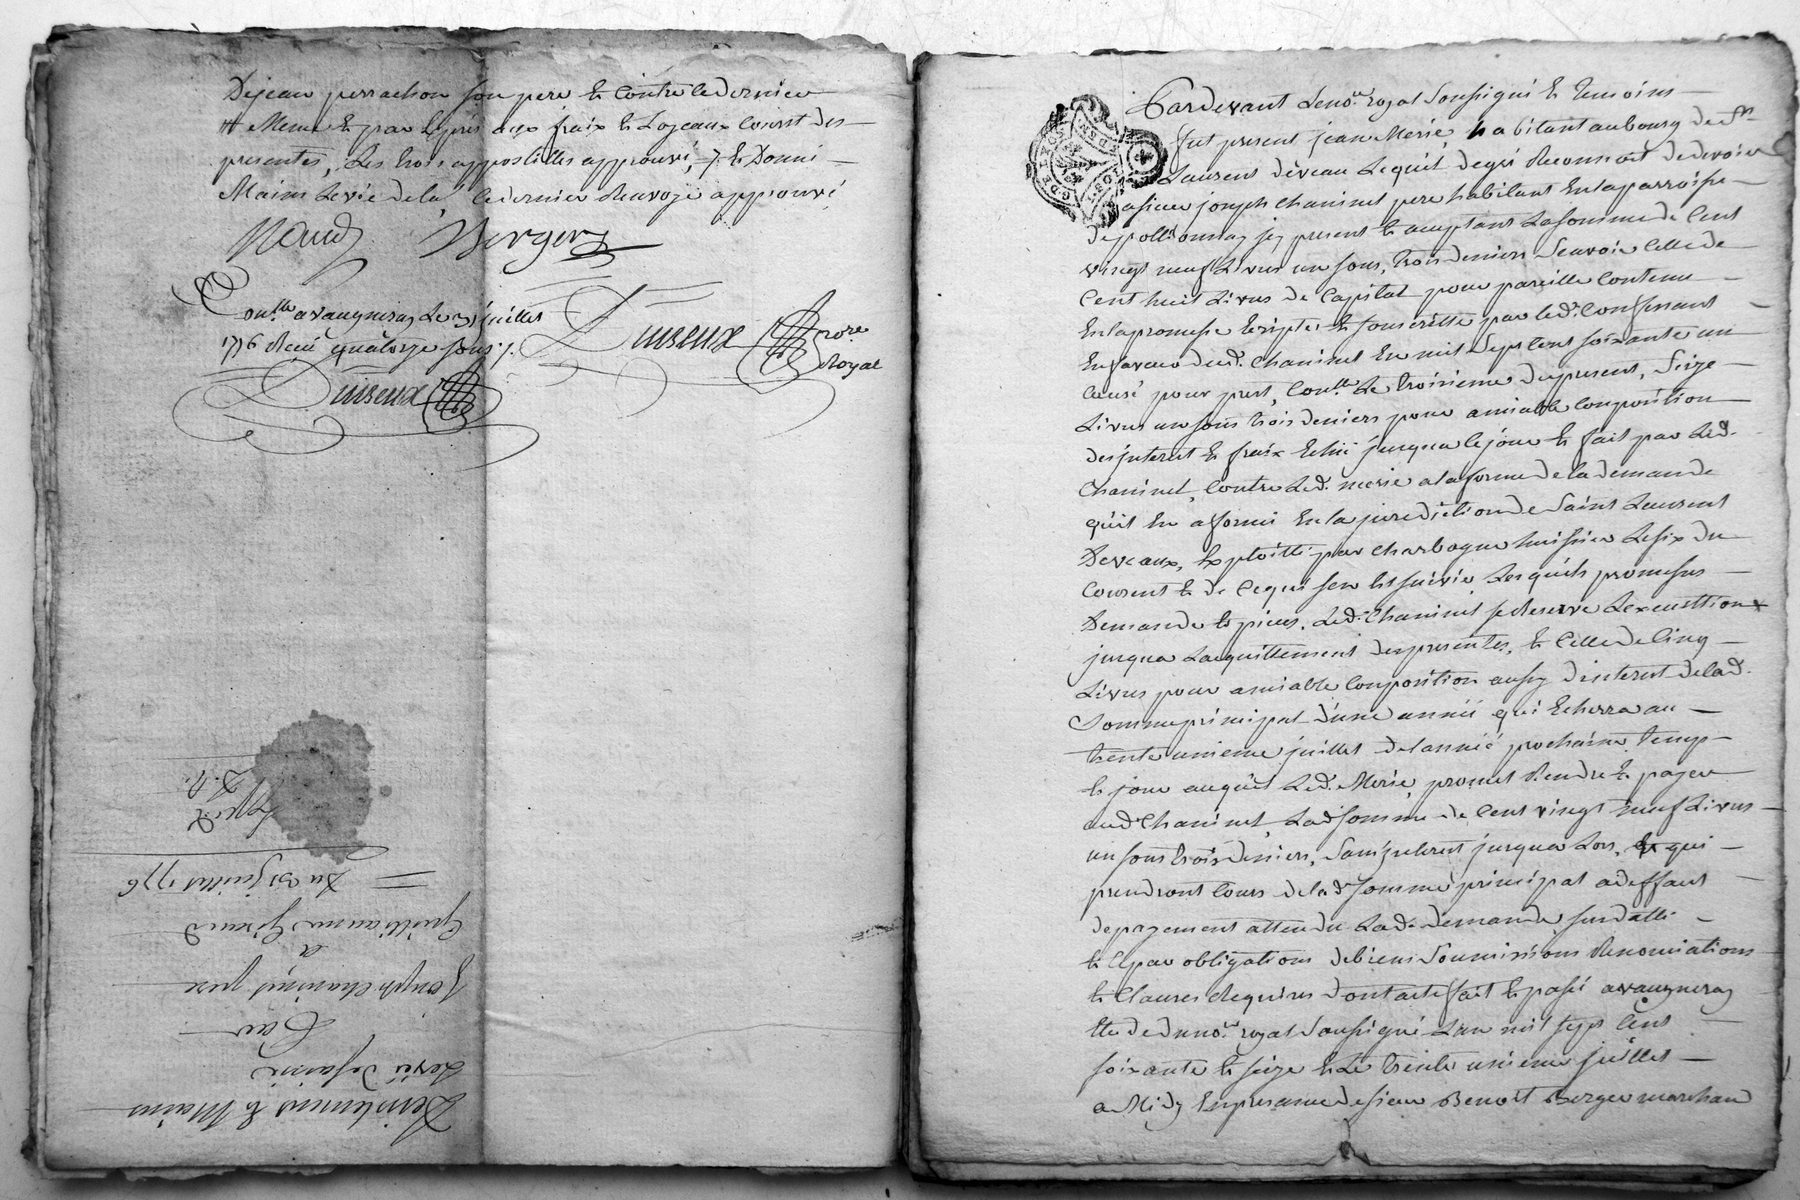 Dejean perrachon son pere & Contre le dernier
Meme & par exprés aux fraix & Loyeaux Coust des
presentes, Les trois appostilles approuvé, & Donné
Mains Levée de la le dernier Renvoye approuvé
Naud Berger
Con.lle a vaugneray Le 31 juillet
1776 Recu quatorze sous
Duiseux
Duiseux no.re Royal
Desistement & Mains
Levée de saisie
Par
Joseph Chaninet pere
a
Guilliaume Giraud
Du 31 juillet 1776
Pardevant Le no.re royal Soussigné & temoins
fut present jean Merie, habitant au bourg de S.t
Laurent de veau Lequel de gré Reconnoit de devoir
a sieur joseph Chaninet pere habitant En la parroisse
de pollionnay, icy present & acceptant La somme de Cent
vingt neuf Livres un sous, trois deniers Scavoir Celle de
Cent huit Livres de Capital pour pareille Contenue
En la promesse Ecripte & souscritte par led. Confessant
En faveur dud. Chaninet En mil Sept Cent soixante un
Causé pour prest, Con.lle Le troisieme du present, Seize
Livres un sous trois deniers pour amiable Composition
des jnterest & fraix Echû jusqua ce jour & fait par Led.
Chaninet, Contre Led. merie a la forme de la demande
qu'il En a formé En la jurediction de Saint Laurent
Deveaux, Exploitté par Charbogne huissier Le six du
Courent & de Ce qui sen Est suivie, Lesquels promesses
Demande & pieces, Led. Chaninet se Reserve Lexecuttion
jusqua Lacquittement des presentes, & Celle de Cinq
Livres pour amiable Composition aussy d'interest de lad.
Somme principal d'une année qui Echerra au
trente unieme juillet de l'année prochaine, temp
& jour auquel Led. Merie, promet Rendre & payer
aud. Chaninet, Lad. somme de Cent vingt neuf Livres
un sous trois deniers, Sans jnterest jusqua Lors, qui
prendront Cours de lad. Somme principal a deffaut
de payement attendu Lad. demande, sur datte
& Ce par obligations de biens Soumissions Renonciations
& Clauses Requises Dont acte fait & passé a vaugneray
Etude du no.re royal Soussigné L'an mil sept Cent
soixante & seize & Le trente unieme juillet
a Midy En presance de sieur Benoit Berger marchand